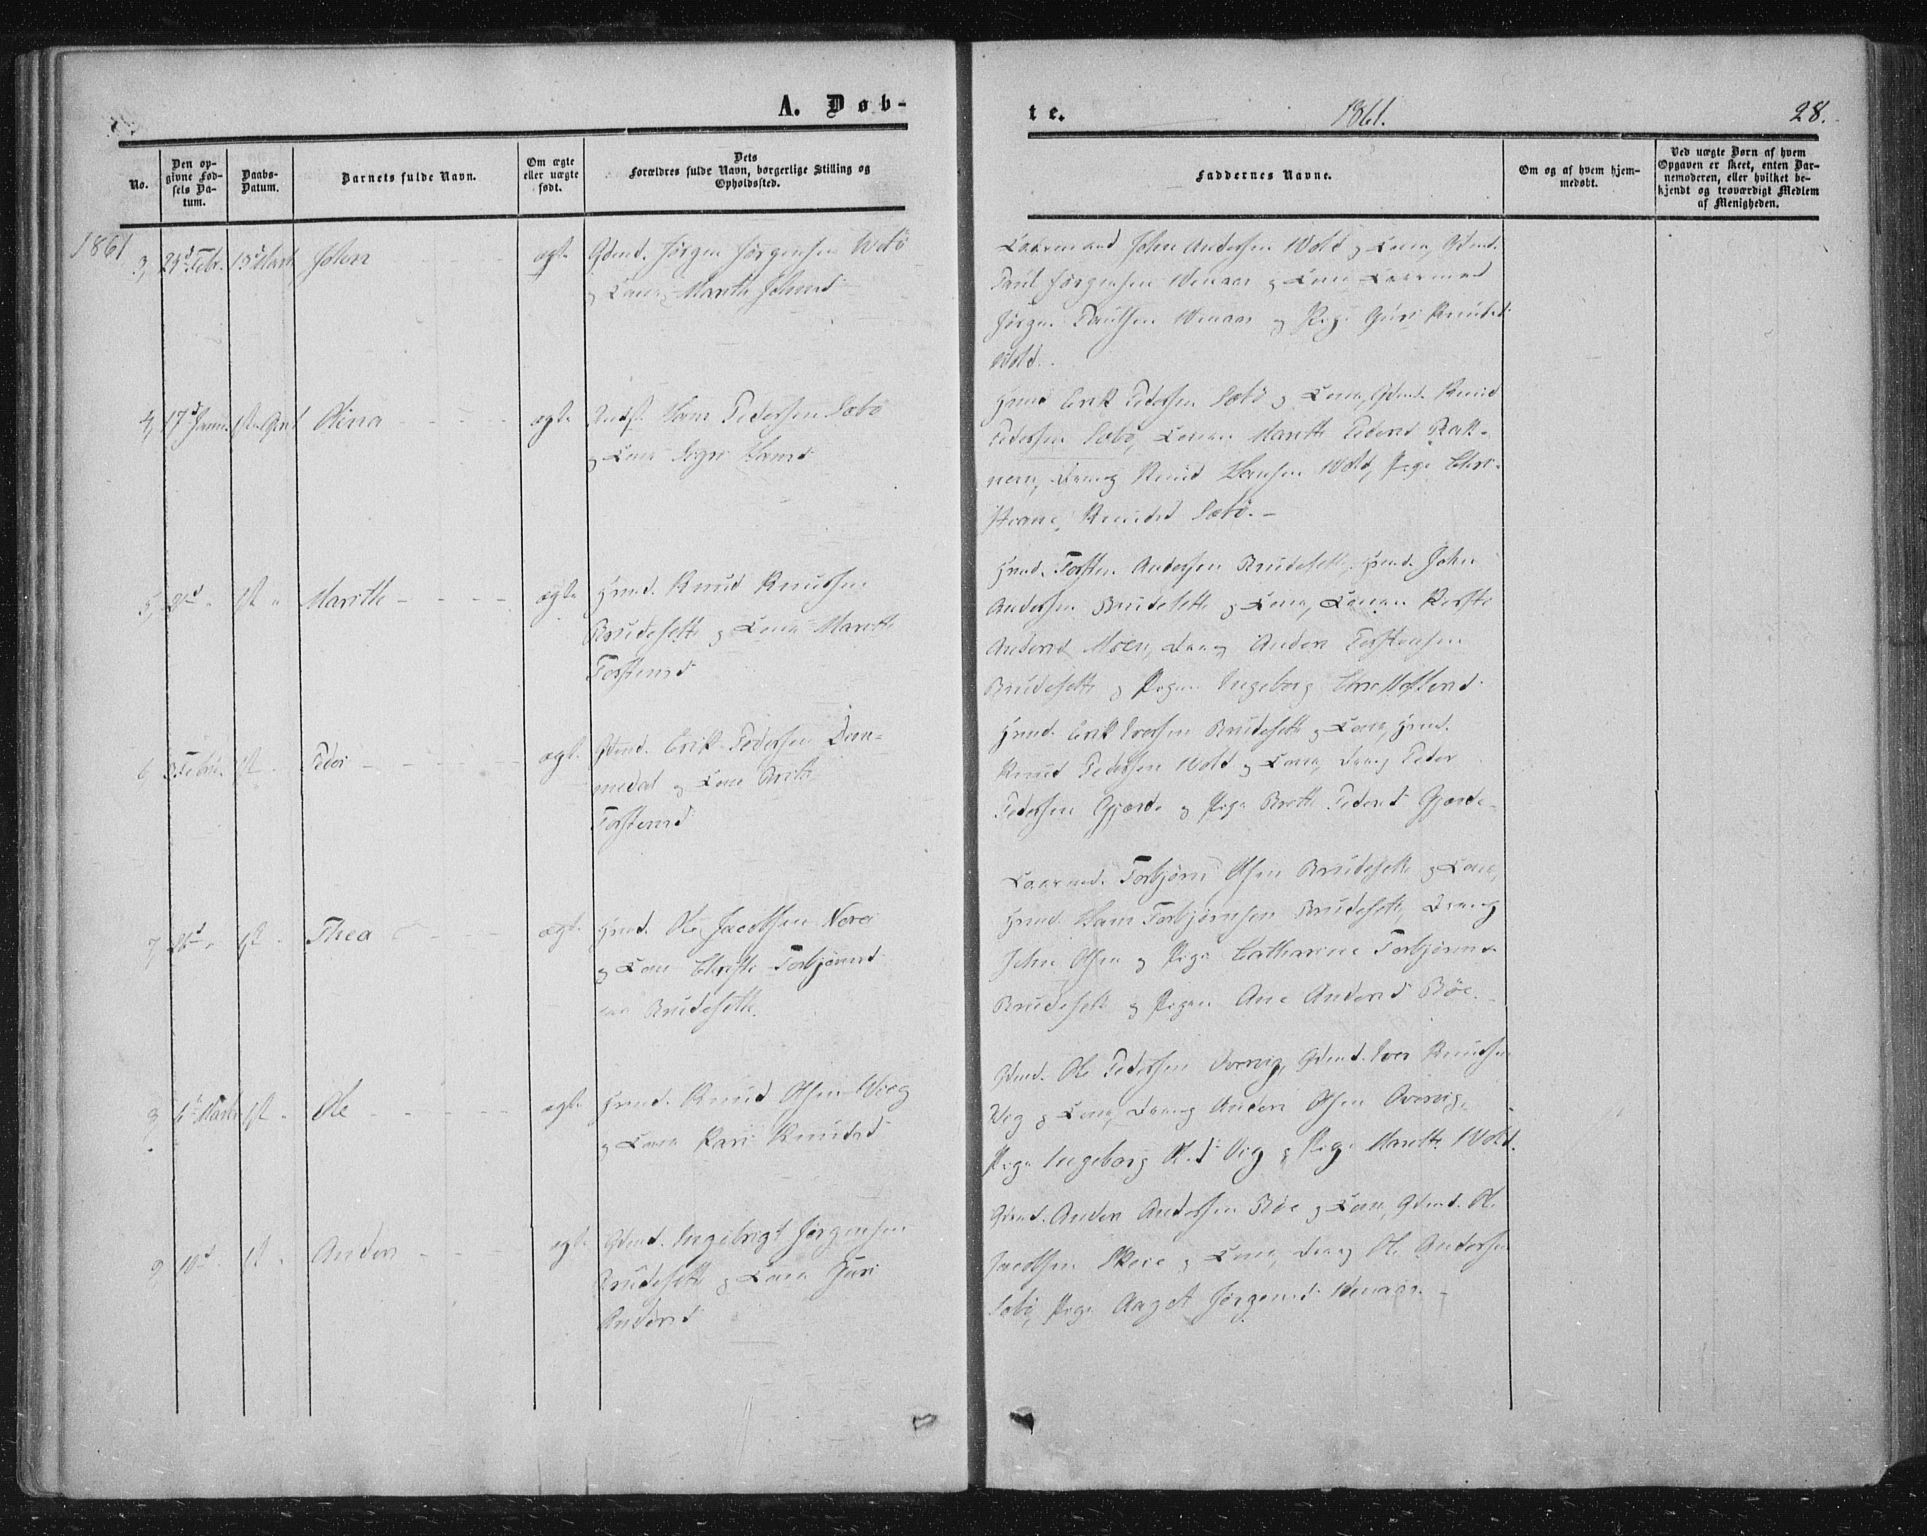 A. Døb-
No.
Den op-
givne Fød-
sels Da-
tum.
Daabs-
Datum.
Barnets fulde Navn.
Om ægte
eller uægte
født.
Dets
Forældres fulde Navn, borgerlige Stilling og
Opholdssted.
1861
3, Febr. 15 Marts John ægte Gdmd. Jørgen Jørgensen
og Kone Marith Johnsd
4, 17d Janu. 1st April Olina ægte Hans Pedersen Sæbø
og Kone Sigri Hansd
5, 1st " Marith ægte Hmd. Knud Knudsen
Brudesætte og Kone Marith
Torstensd
6, Febru. 1st Peder ægte Gdmd. Erik Pedersen Dom-
medal og Kone Brith
Torstensd
7, 1st " Thea ægte Hmd. Ole Jacobsen
og Kone Christi Torbjørnsd
Brudesætte.
1st " Ole ægte Hmd. Knud Olsen Wiig
og Kone Kari Knudsd
9, 10d 1st " Anders ægte Gdmd. Ingebrigt Jørgensen
Brudesætte og Kone Guri
Andersd
te. 1861. 28.
Faddernes Navne.
Om og af hvem hjem-
medøbt.
Ved uægte Børn af hvem
Opgaven er skeet, enten Bar-
nemoderen, eller hvilket be-
kjendt og troværdigt Medlem
af Menigheden.
Kaarmand John Andersen Wold og Kone, Gdmd.
Paul Jørgensen Wenaas og Kone, Kaarmand
Jørgen Paulsen Wenaas og Pige Guri Knudsd
Wold.
Hmd Erik Pedersen Sæbø og Kone, Gdmd. Knud
Pedersen Sæbø, Konen Marith Pedersd Rak-
nem, Dreng Knud Hansen Wold, Pige Chri-
stiane Knudsd Sæbø. -
Hmd. Torsten Andersen Brudesætte, Hmd. John
Andersen Brudesætte og Kone, Konen Kirsti
Andersd Moen, Dreng Anders Torstensen
Brudesætte og Pigen Ingeborg
Hmd. Erik Iversen Brudesætte og Kone, Hmd.
Knud Pedersen Wold og Kone, Dreng Peder
Pedersen Gjærde og Pige Brith Pedersd Gjærde.
Kaarmd. Torbjørn Olsen Brudesætte og Kone,
Hmd. Hans Torbjørnsen Brudesætte, Dreng
John Olsen og Pige Catharine Torbjørnsd.
Brudesætte og Pigen Ane Andersd Bøe.
Gdmd. Ole Pedersen Overvig, Gdmd. Iver Knudsen
Vig og Kone, Dreng Anders Olsen Overvig,
Pige Ingeborg Olsd Vig og Pige Marith Wold.
Gdmd. Anders Andersen Bøe og Kone, Gdmd. Ole
Jacobsen Skeie og Kone, Dreng Ole Andersen
Sæbø, Pige Aagot Jørgensd Wenaas. -